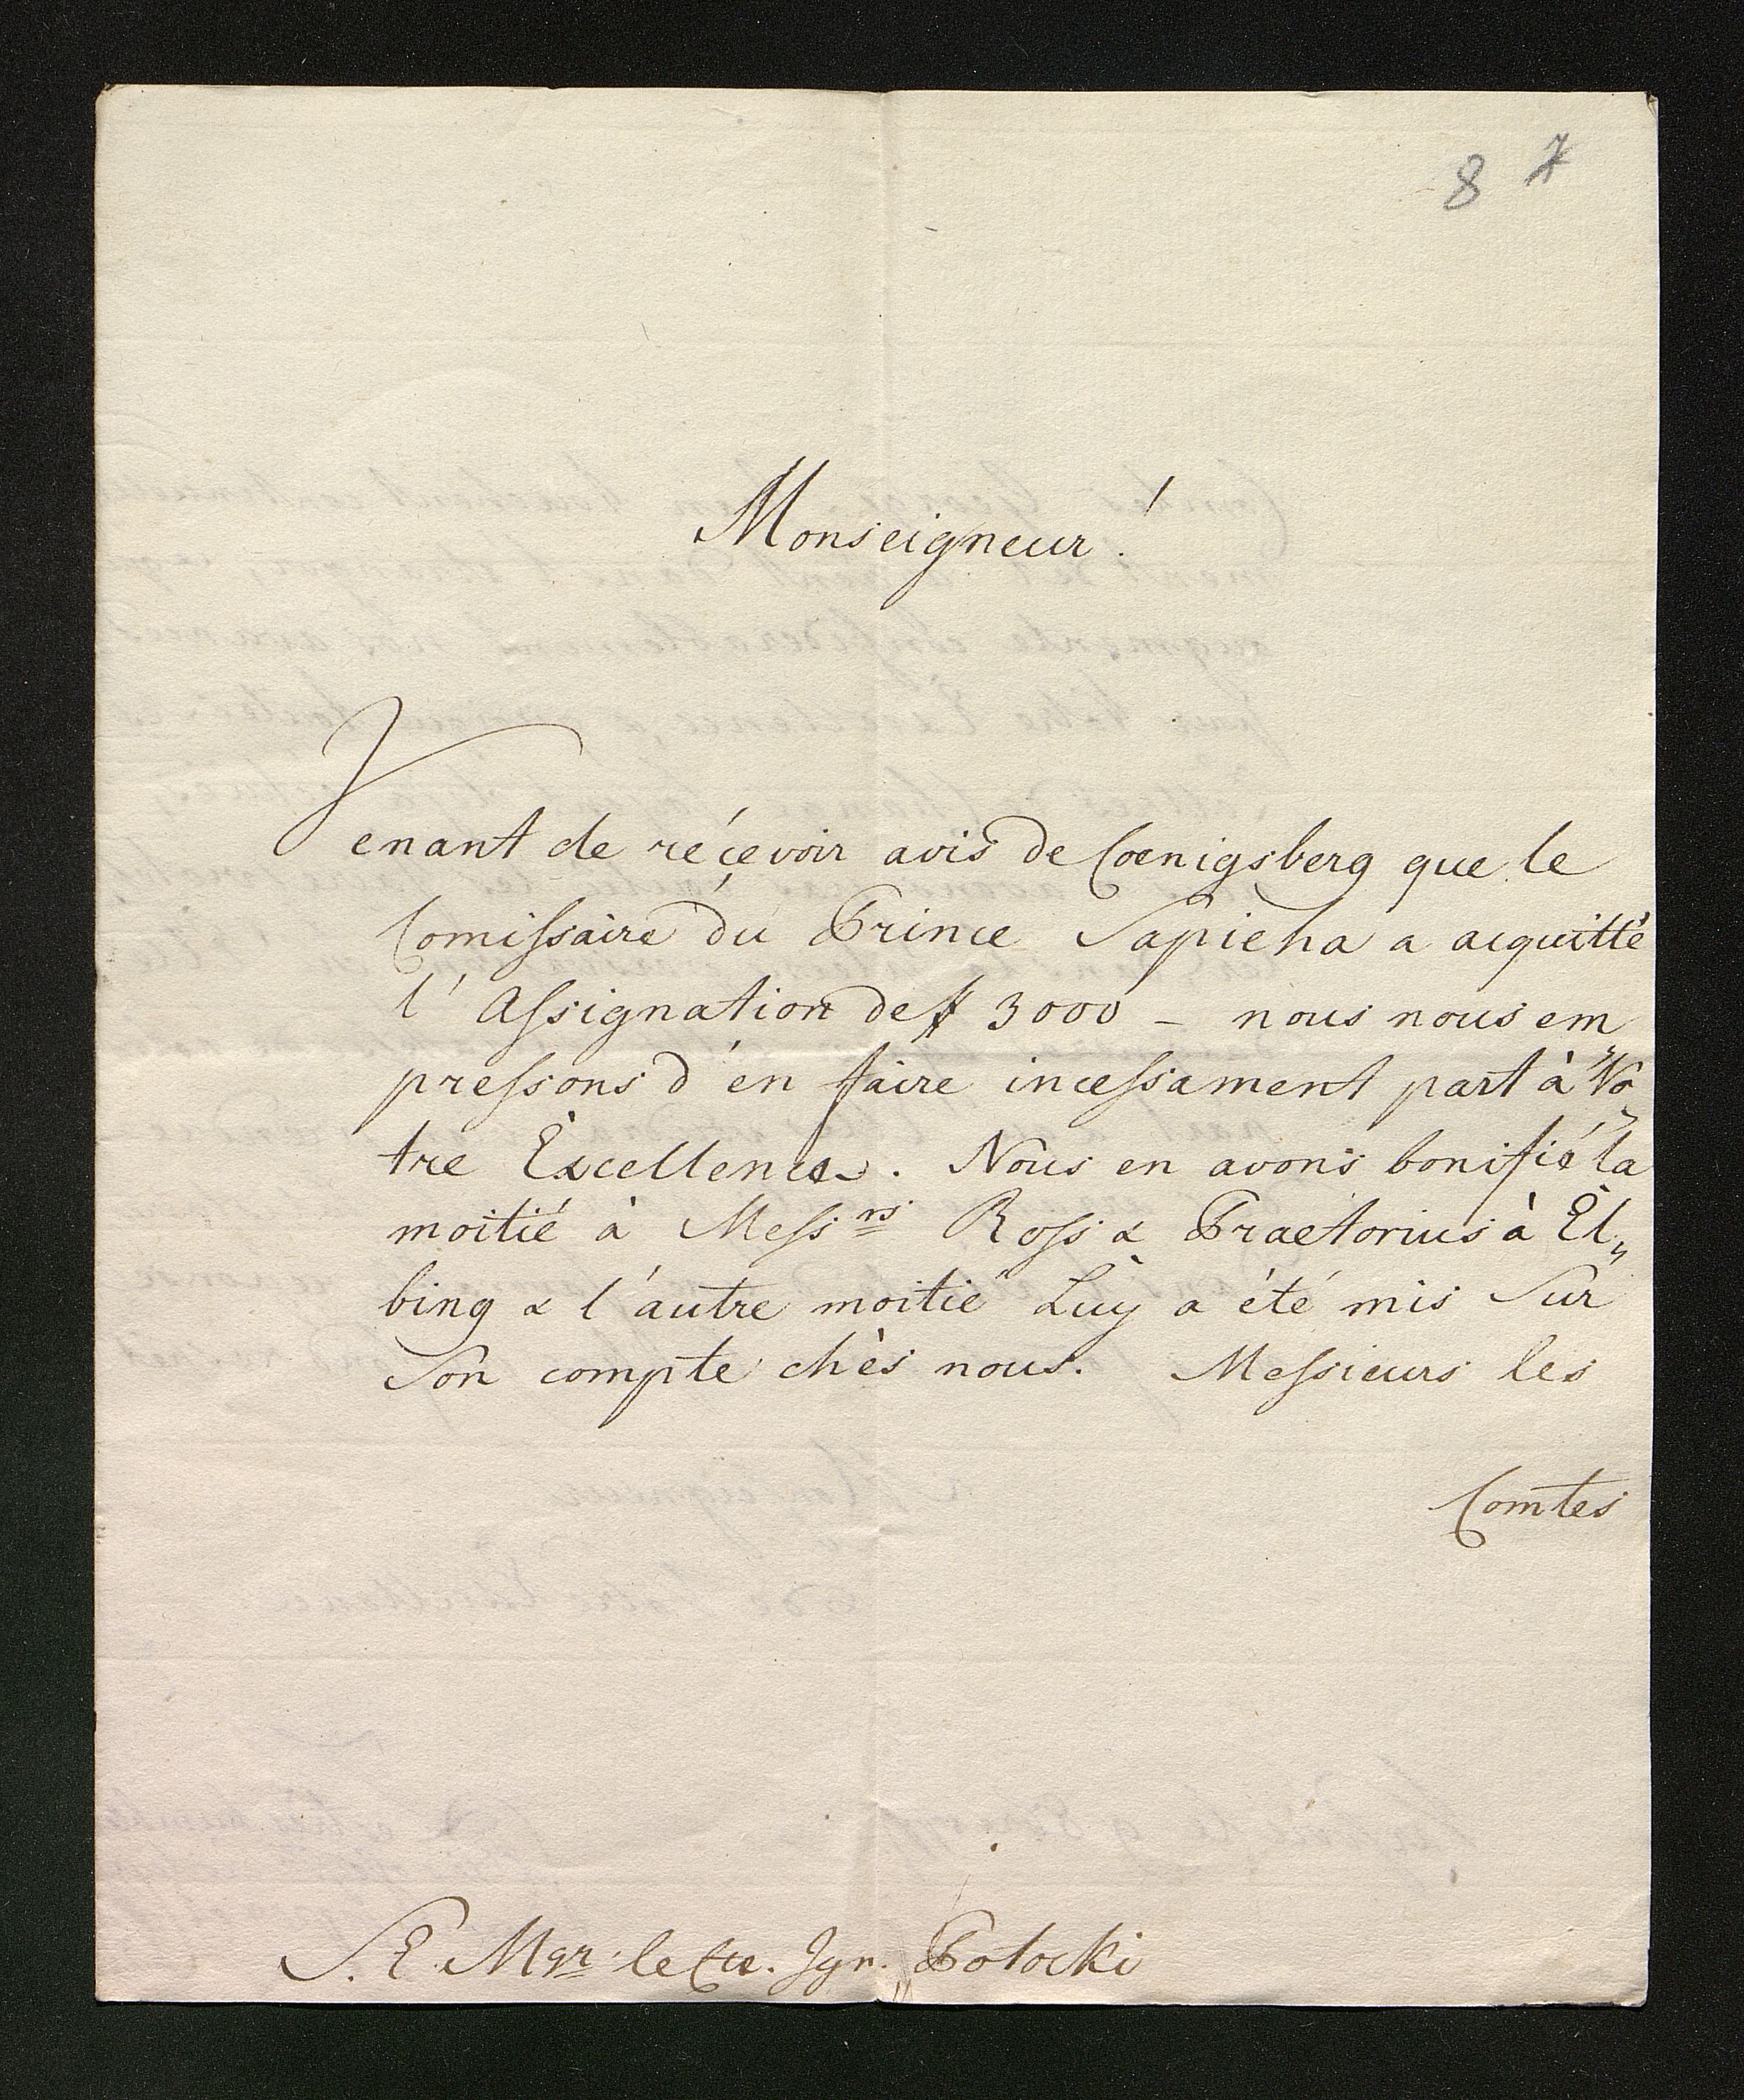 8 7
Monseigneur!
Venant de réçevoir avis de Coenigsberg que le
Comissaire du Prince Sapieha a acquitté
l'Assignation de # 3000 – nous nous em
pressons d'en faire incessament part à Vo
tre Excellence. Nous en avons bonifié la
moitié à Messrs Ross & Praetorius à El„
bing & l'autre moitié Luy a été mis Sur
Son compte chès nous. Messieurs les
Comtes
S. E. Mgr. le Cte. Ign. Potocki